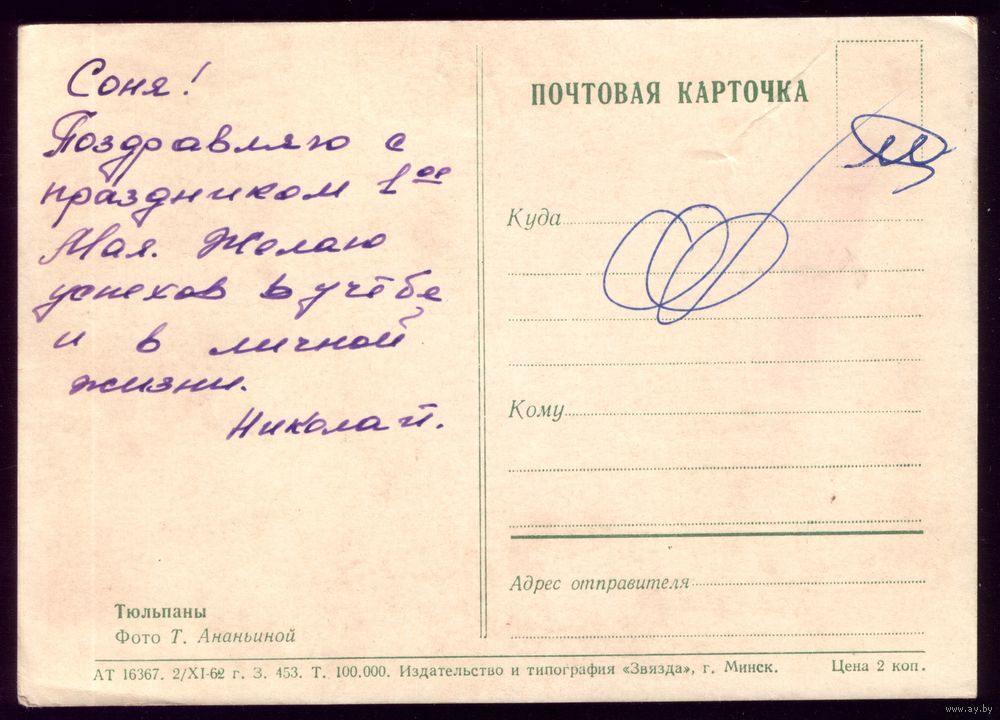 Соня!
Поздравляю с
праздником 1ое
Мая. Желаю
успехов в учёбе
и в личной
жизни.
Николай.
Тюльпаны
Фото Т. Ананьиной
ПОЧТОВАЯ КАРТОЧКА
Куда
Кому
Адрес отправителя
АТ 16367. 2/XI-62 г. З. 453. Т. 100.000. Издательство и типография «Звязда», г. Минск. Цена 2 коп.
www.ay.by